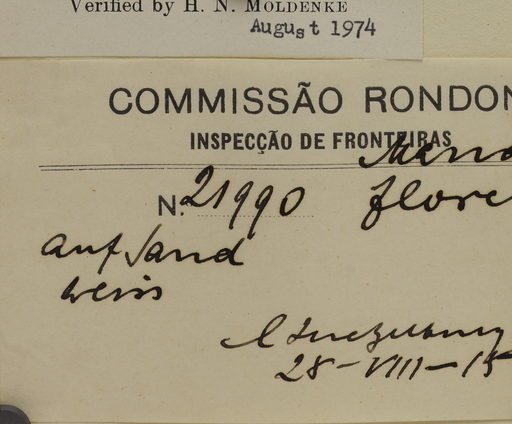 Verified by H. N. MOLDENKE
August 1974
COMMISSÃO RONDON
INSPECÇÃO DE FRONTEIRAS
N. 21990
auf Sand
weiss
28-VIII-15